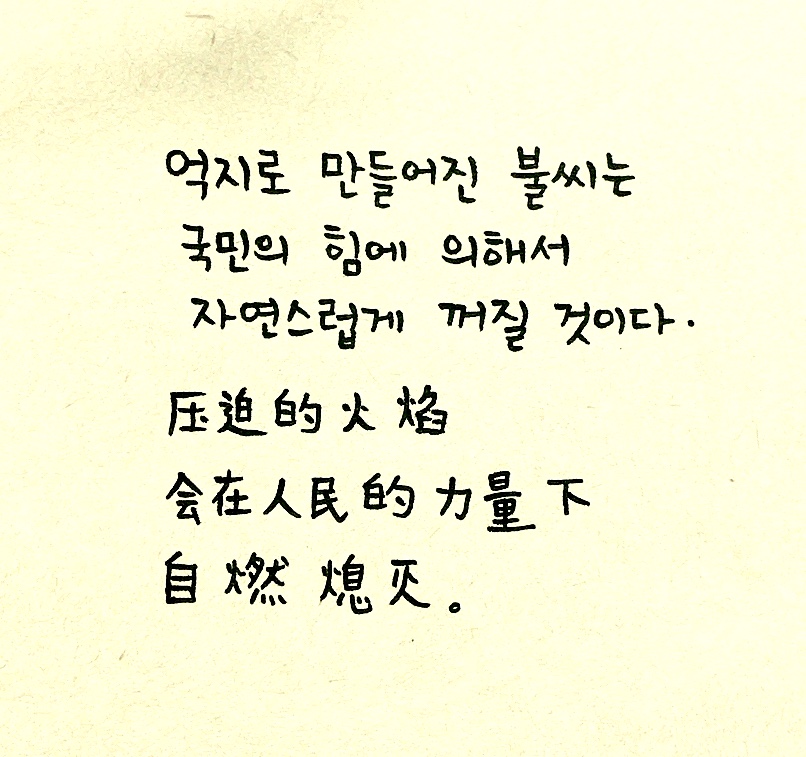 억지로 만들어진 불씨는
국민의 힘에 의해서
자연스럽게 꺼질 것이다.
压迫的火焰
会在人民的力量下
自燃熄灭。